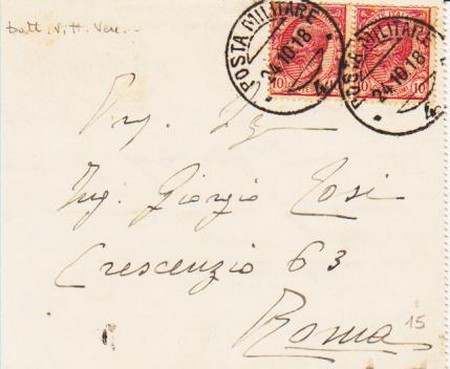 batt. Vitt. Ven.
POSTA MILITARE 24.10.18 4
POSTA MILITARE 24.10.18 4
10 10
10
Ing. Giorgio Tosi
Crescenzio 63
Roma
15